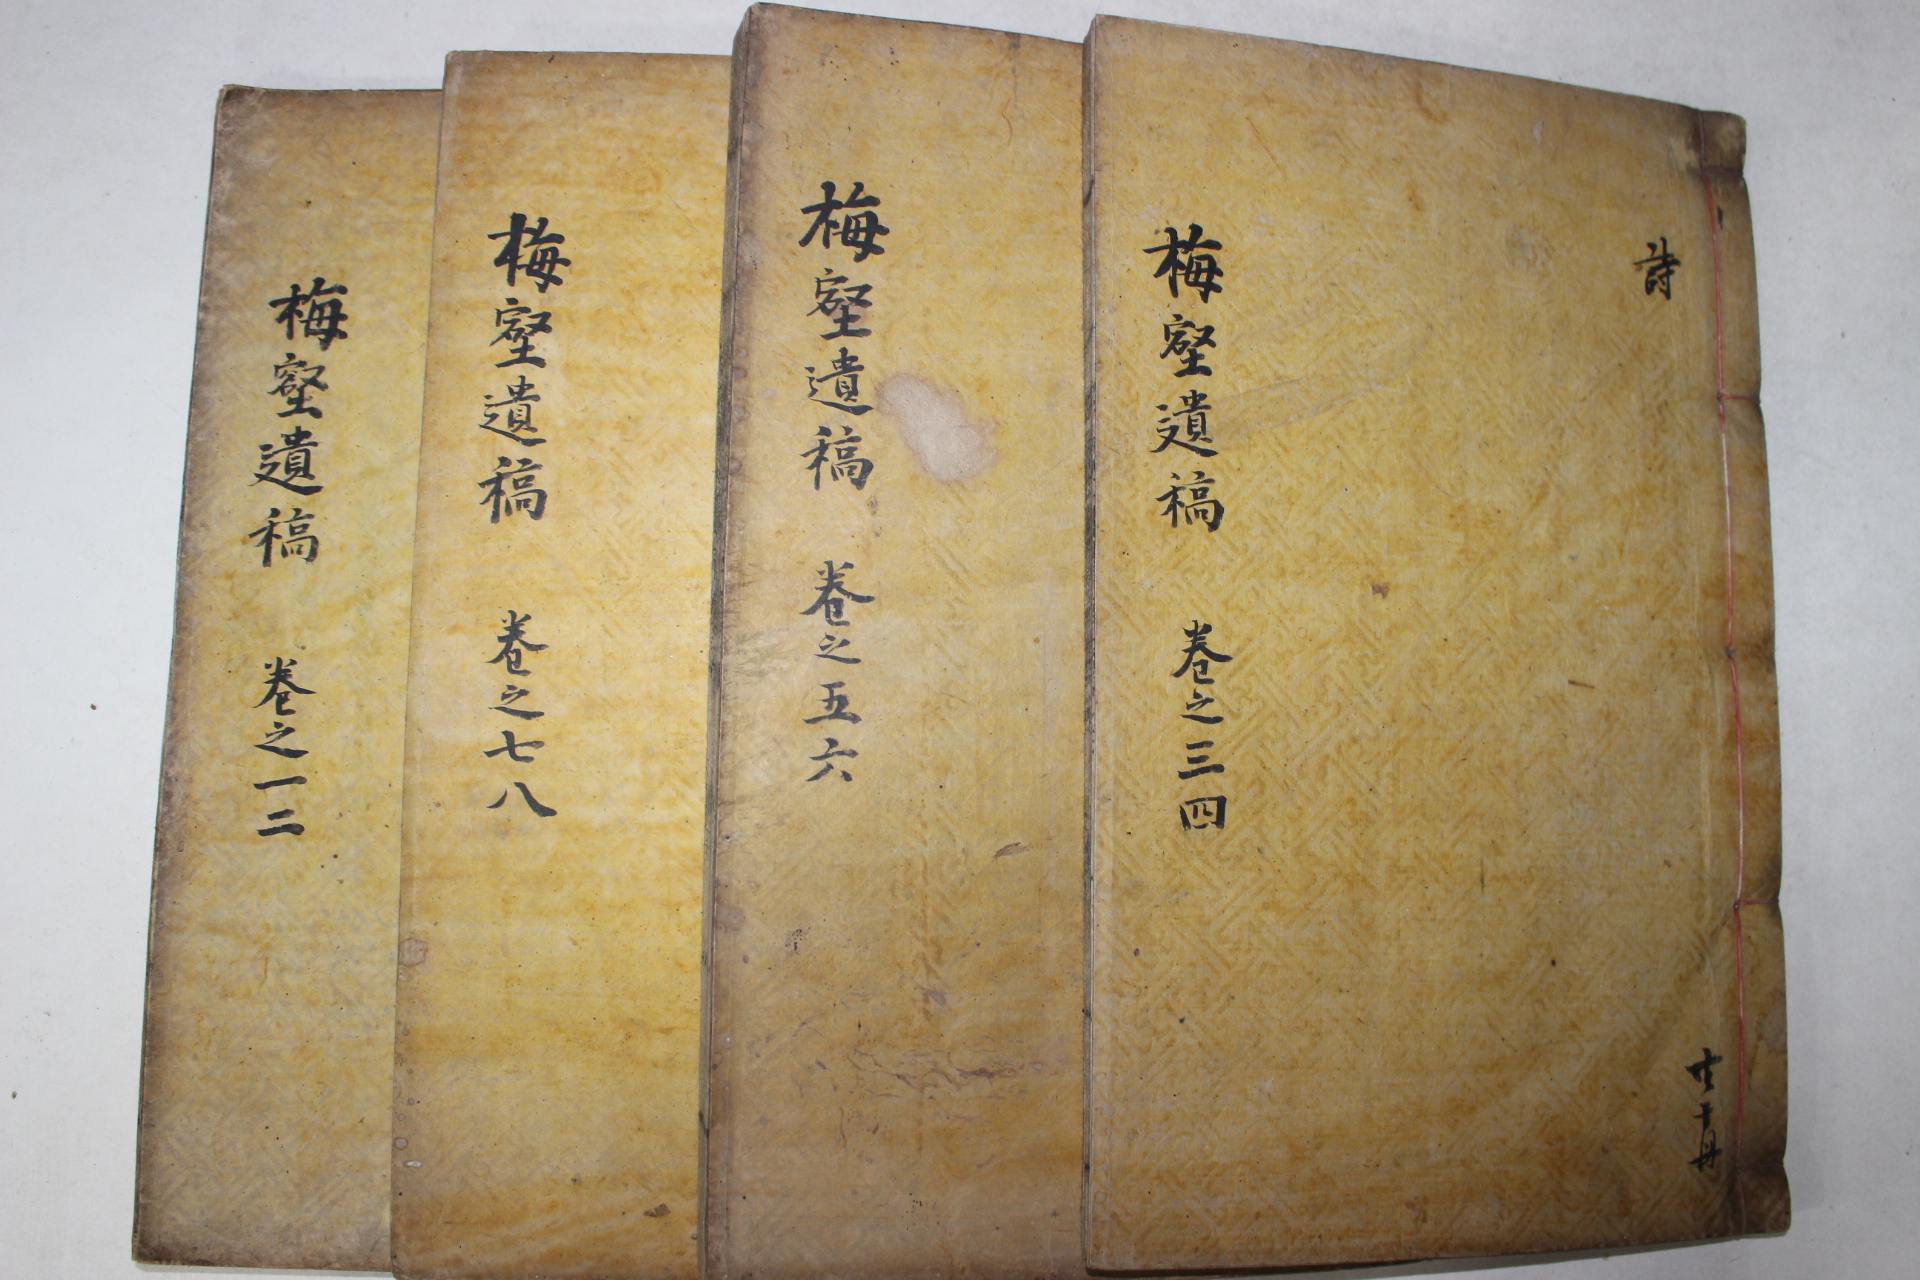 詩
共十冊
梅壑遺稿 卷之三四
梅壑遺稿 卷之五六
梅壑遺稿 卷之七八
梅壑遺稿 卷之一二